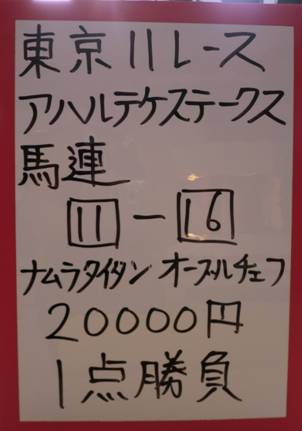 東京11レース
アハルテケステークス
馬連
11-16
ナムラタイタン オーブルチェフ
20000円
1点勝負